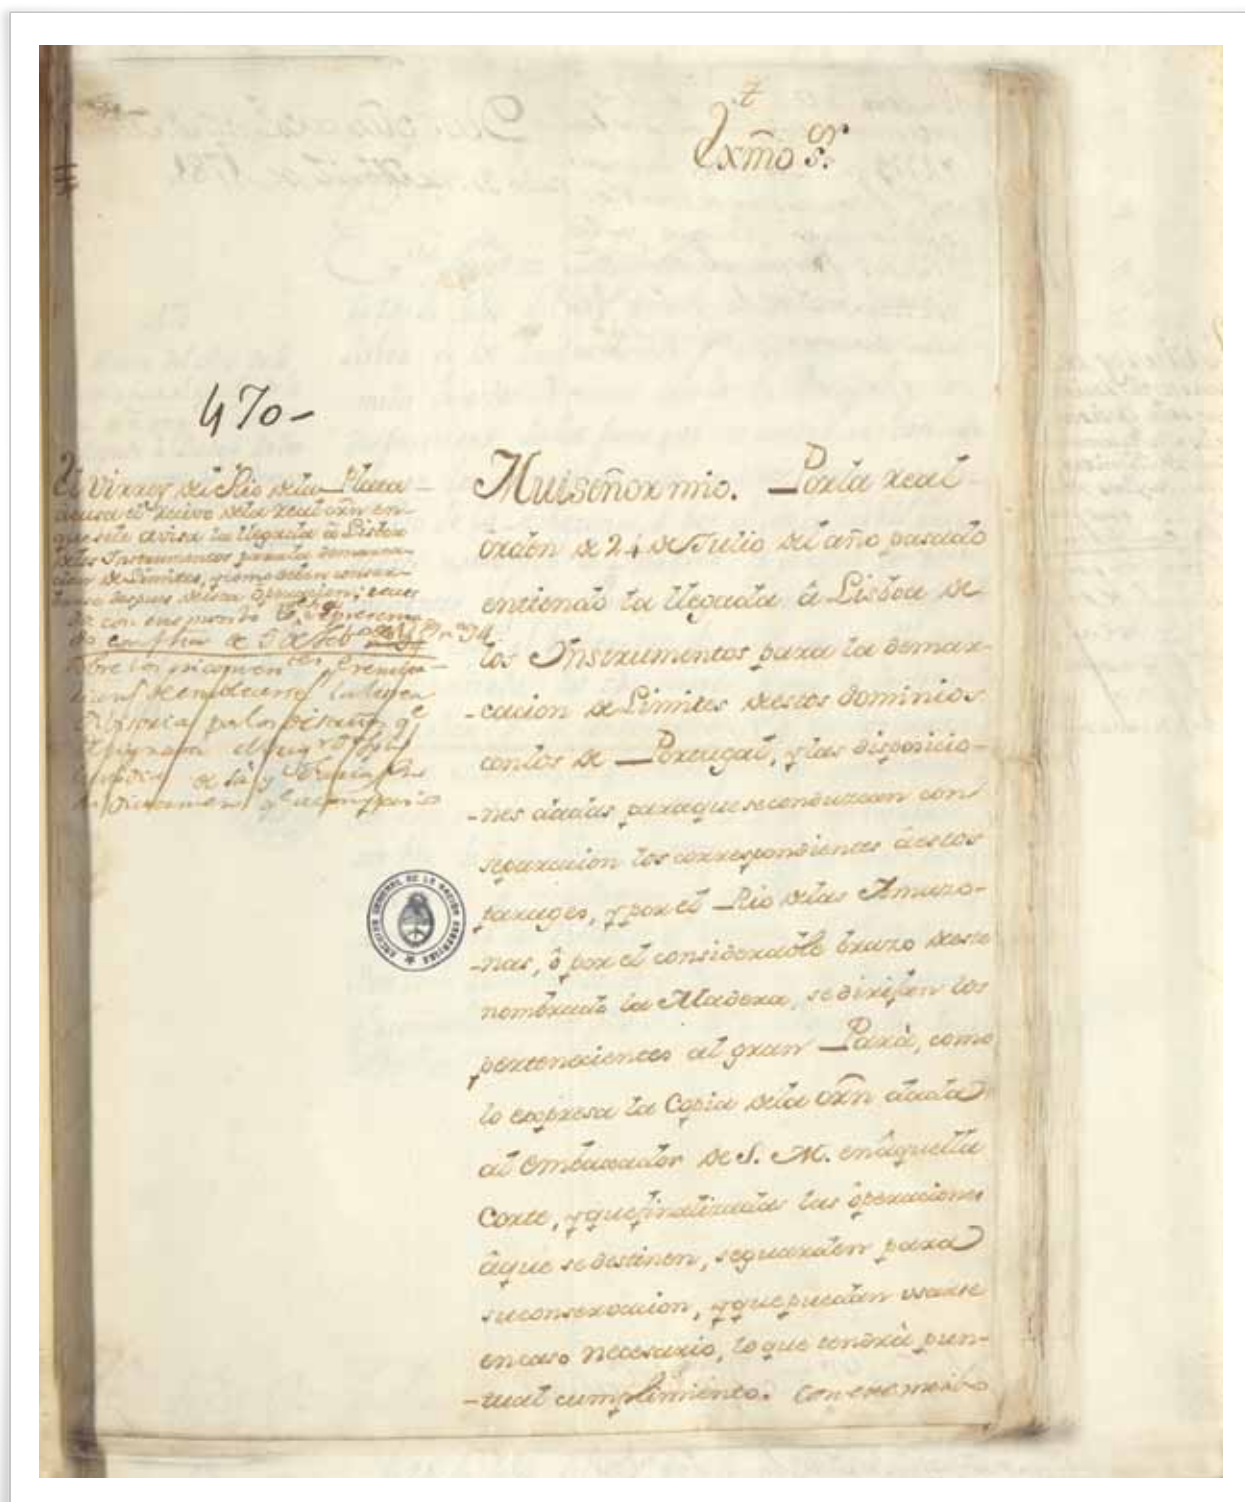 t
Exmo Sr.
470-
El Virrey del Rio dela Plata
acusa el recivo dela real orn en
que sele avisa la llegada à Lisboa
delos Instrumentos para la demarca-
cion de Limites, y como deben conser-
varse despues de esta operacion;
con
de 5 de Feb
sobre los
de
Muiseñor mio. Porla real
orden de 24 de Julio del año pasado
entiendo la llegada â Lisboa de
los Instrumentos para la demar-
-cacion de Limites deestos dominios
conlos de Portugal, y las disposicio-
-nes dadas paraque seconduzcan con
separacion los correspondientes âestos
parages, y por el Rio delas Amazo-
-nas, ô por el considerable brazo deeste
nombrado la Madera, se dirijan los
pertenecientes al gran Parà, como
lo expresa la Copia dela orn dada
al Embaxador de S. M. enâquella
Corte, y quefinalizadas las ôperaciones
âque se destinen, seguarden para
suconservacion, y quepuedan usarse
encaso necesario, loque tendrà pun-
-tual cumplimiento. Con ese motibo
ARCHIVO GENERAL DE LA NACION ARGENTINA